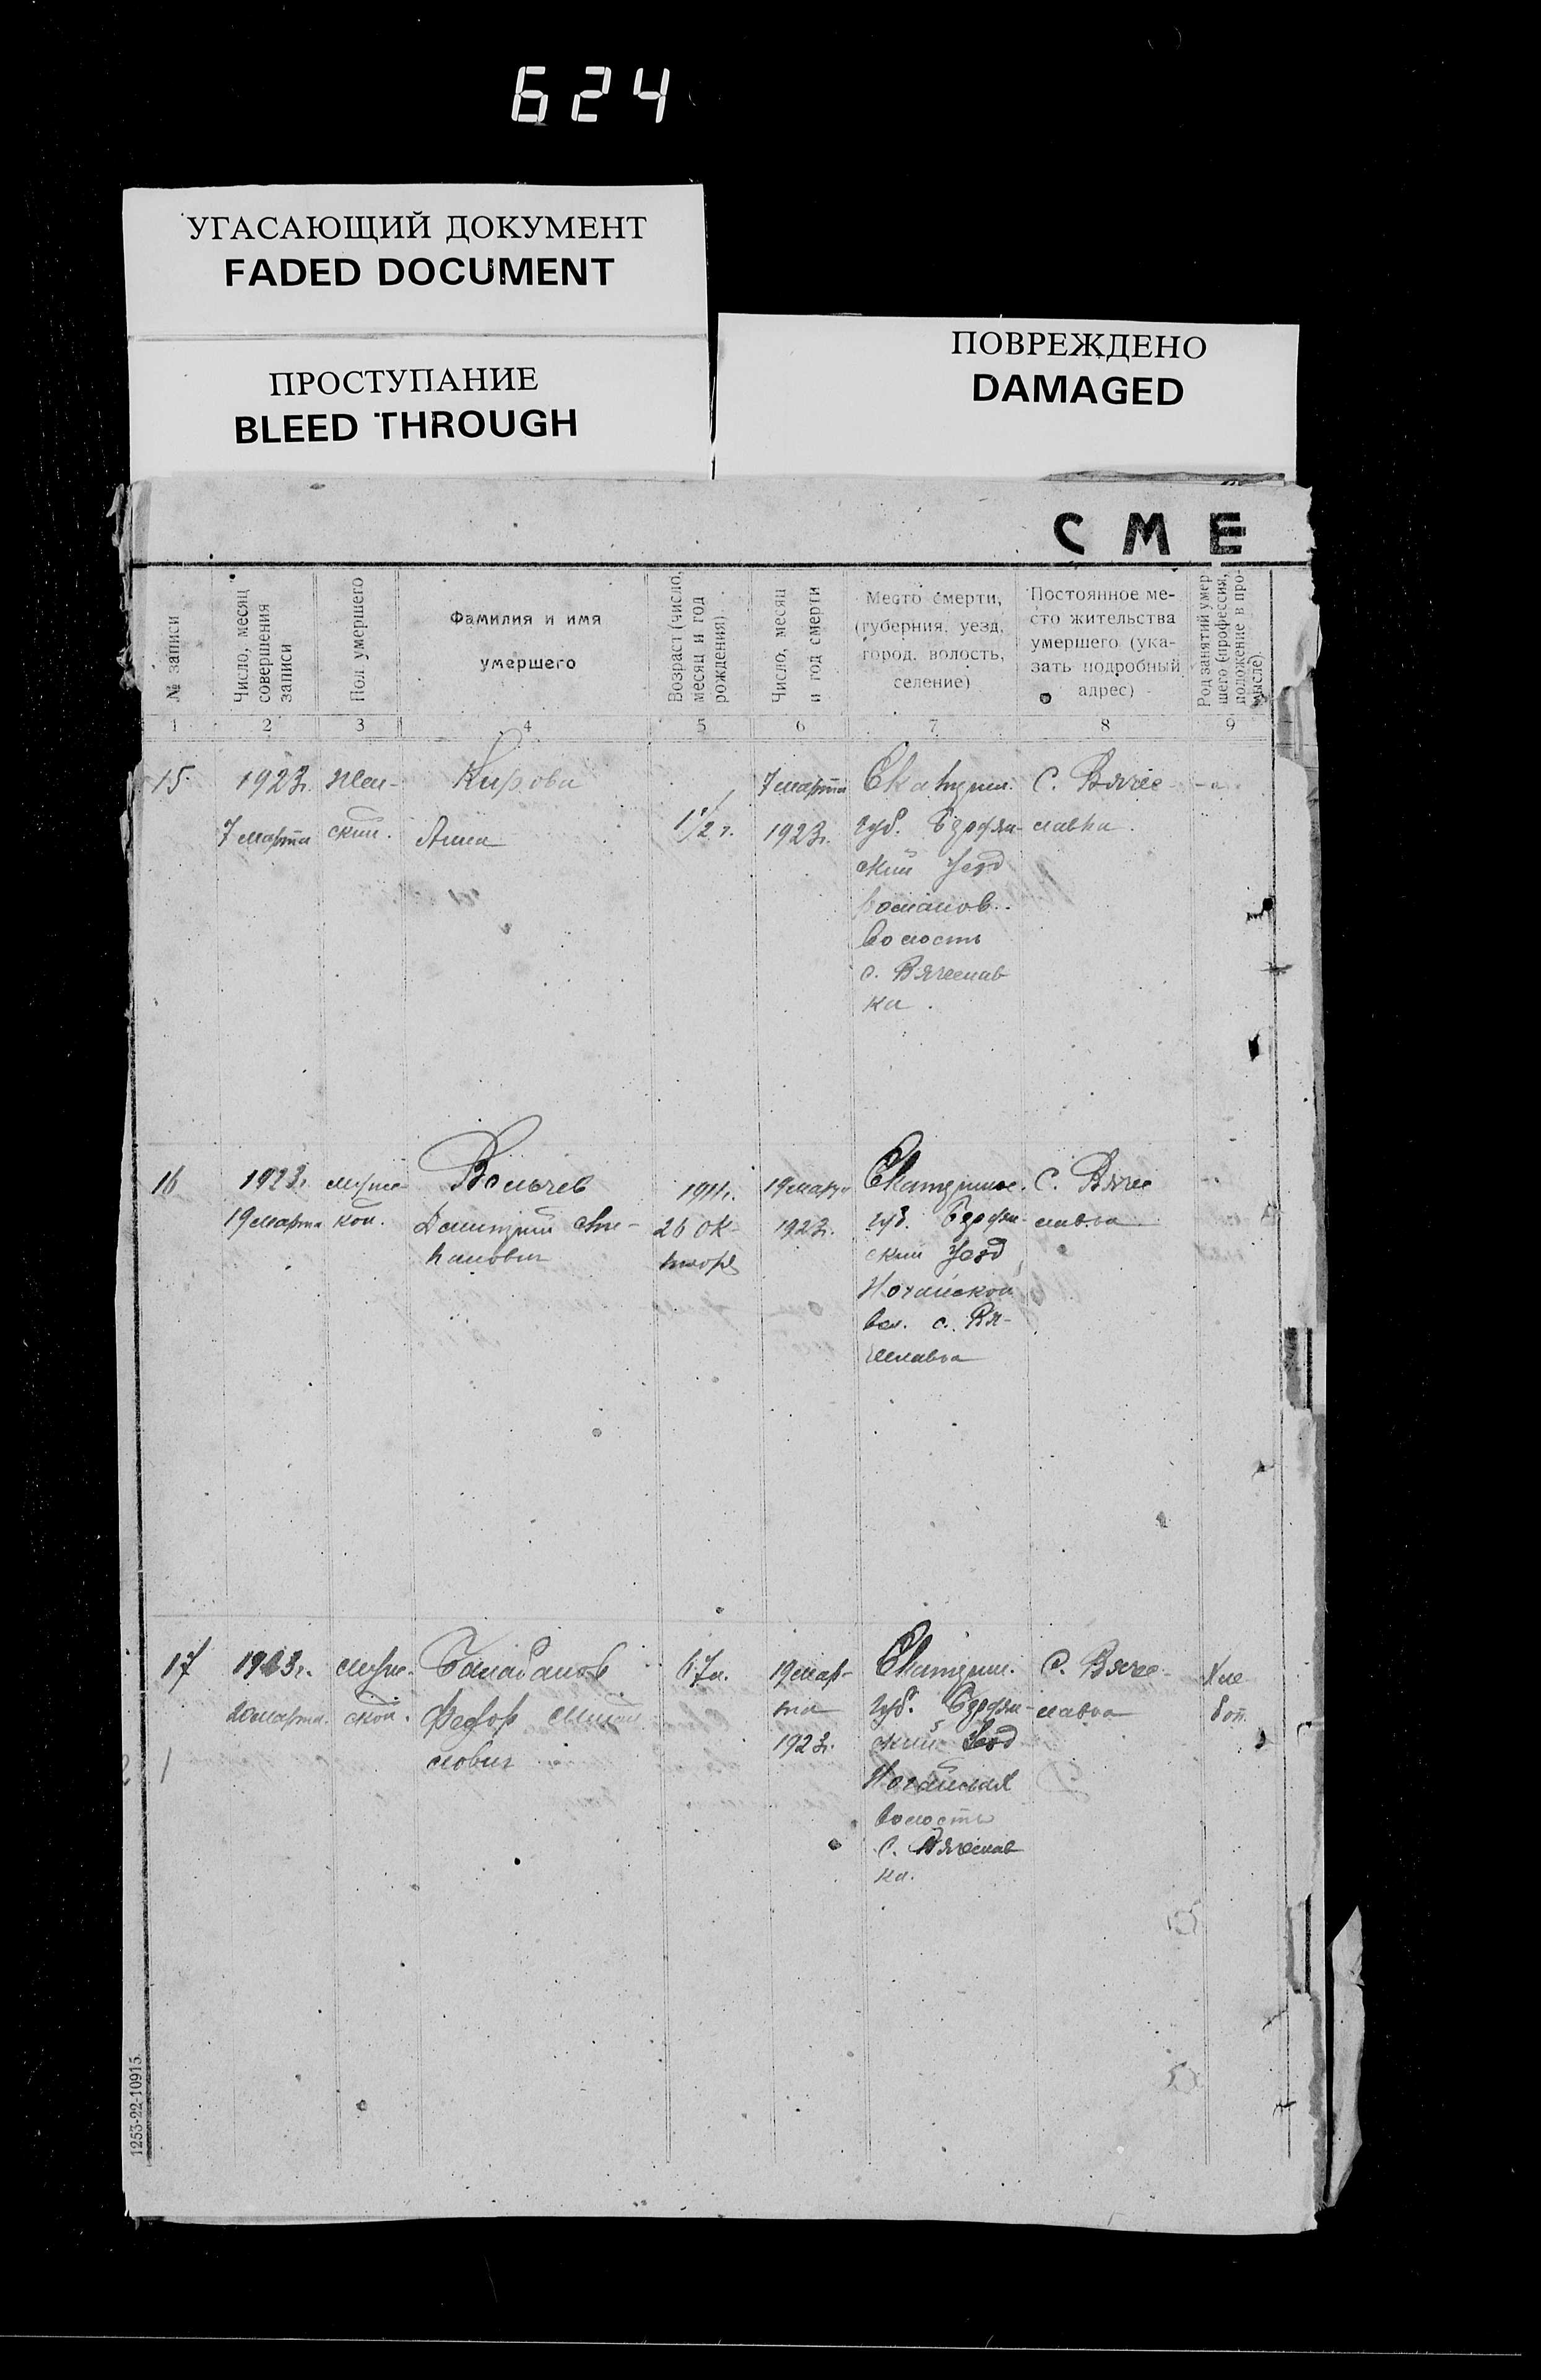 624
УГАСАЮЩИЙ ДОКУМЕНТ
FADED DOCUMENT
ПРОСТУПАНИЕ
BLEED THROUGH
ПОВРЕЖДЕНО
DAMAGED
СМЕ
№ записи
Число, месяц
совершения
записи
Пол умершего
Фамилия и имя
умершего
Возраст (число,
месяц и год
рождения)
Число, месяц
и год смерти
Место смерти,
(губерния, уезд,
город, волость,
селение)
Постоянное ме-
сто жительства
умершего (ука-
зать подробный
адрес)
Род занятий умер-
шего (профессия,
положение в про-
мысле).
1 2 3 4 5 6 7 8 9
15
1923г.
7 марта
Жен-
ский.
Кирова
Анна
1 1/2 г.
7 марта
1923г.
Екатерин.
губ. Бердян-
ский Уезд
волость
с. Вячеслав
ка.
С. Вячес-
лавка.
16
1923г.
19 марта
муже
кой.
Вольчев
Димитрий Сте-
панович
1911г.
26 ок-
тября
19 марта
1923г.
Екатеринос.
губ. Бердян-
ский Уезд
Ногайской
вол. с. Вя-
чеславка
С. Вячес
лавка
17
1923г.
20 марта.
муж.
ской.
Балабанов
Федор
67л.
19 мар-
та
1923г.
Екатерин.
губ. Бердян-
ский Уезд
Ногайская
волость
с. Вячеслав
ка.
С. Вячес-
лавка
Хле
боп.
1253-22-10915.